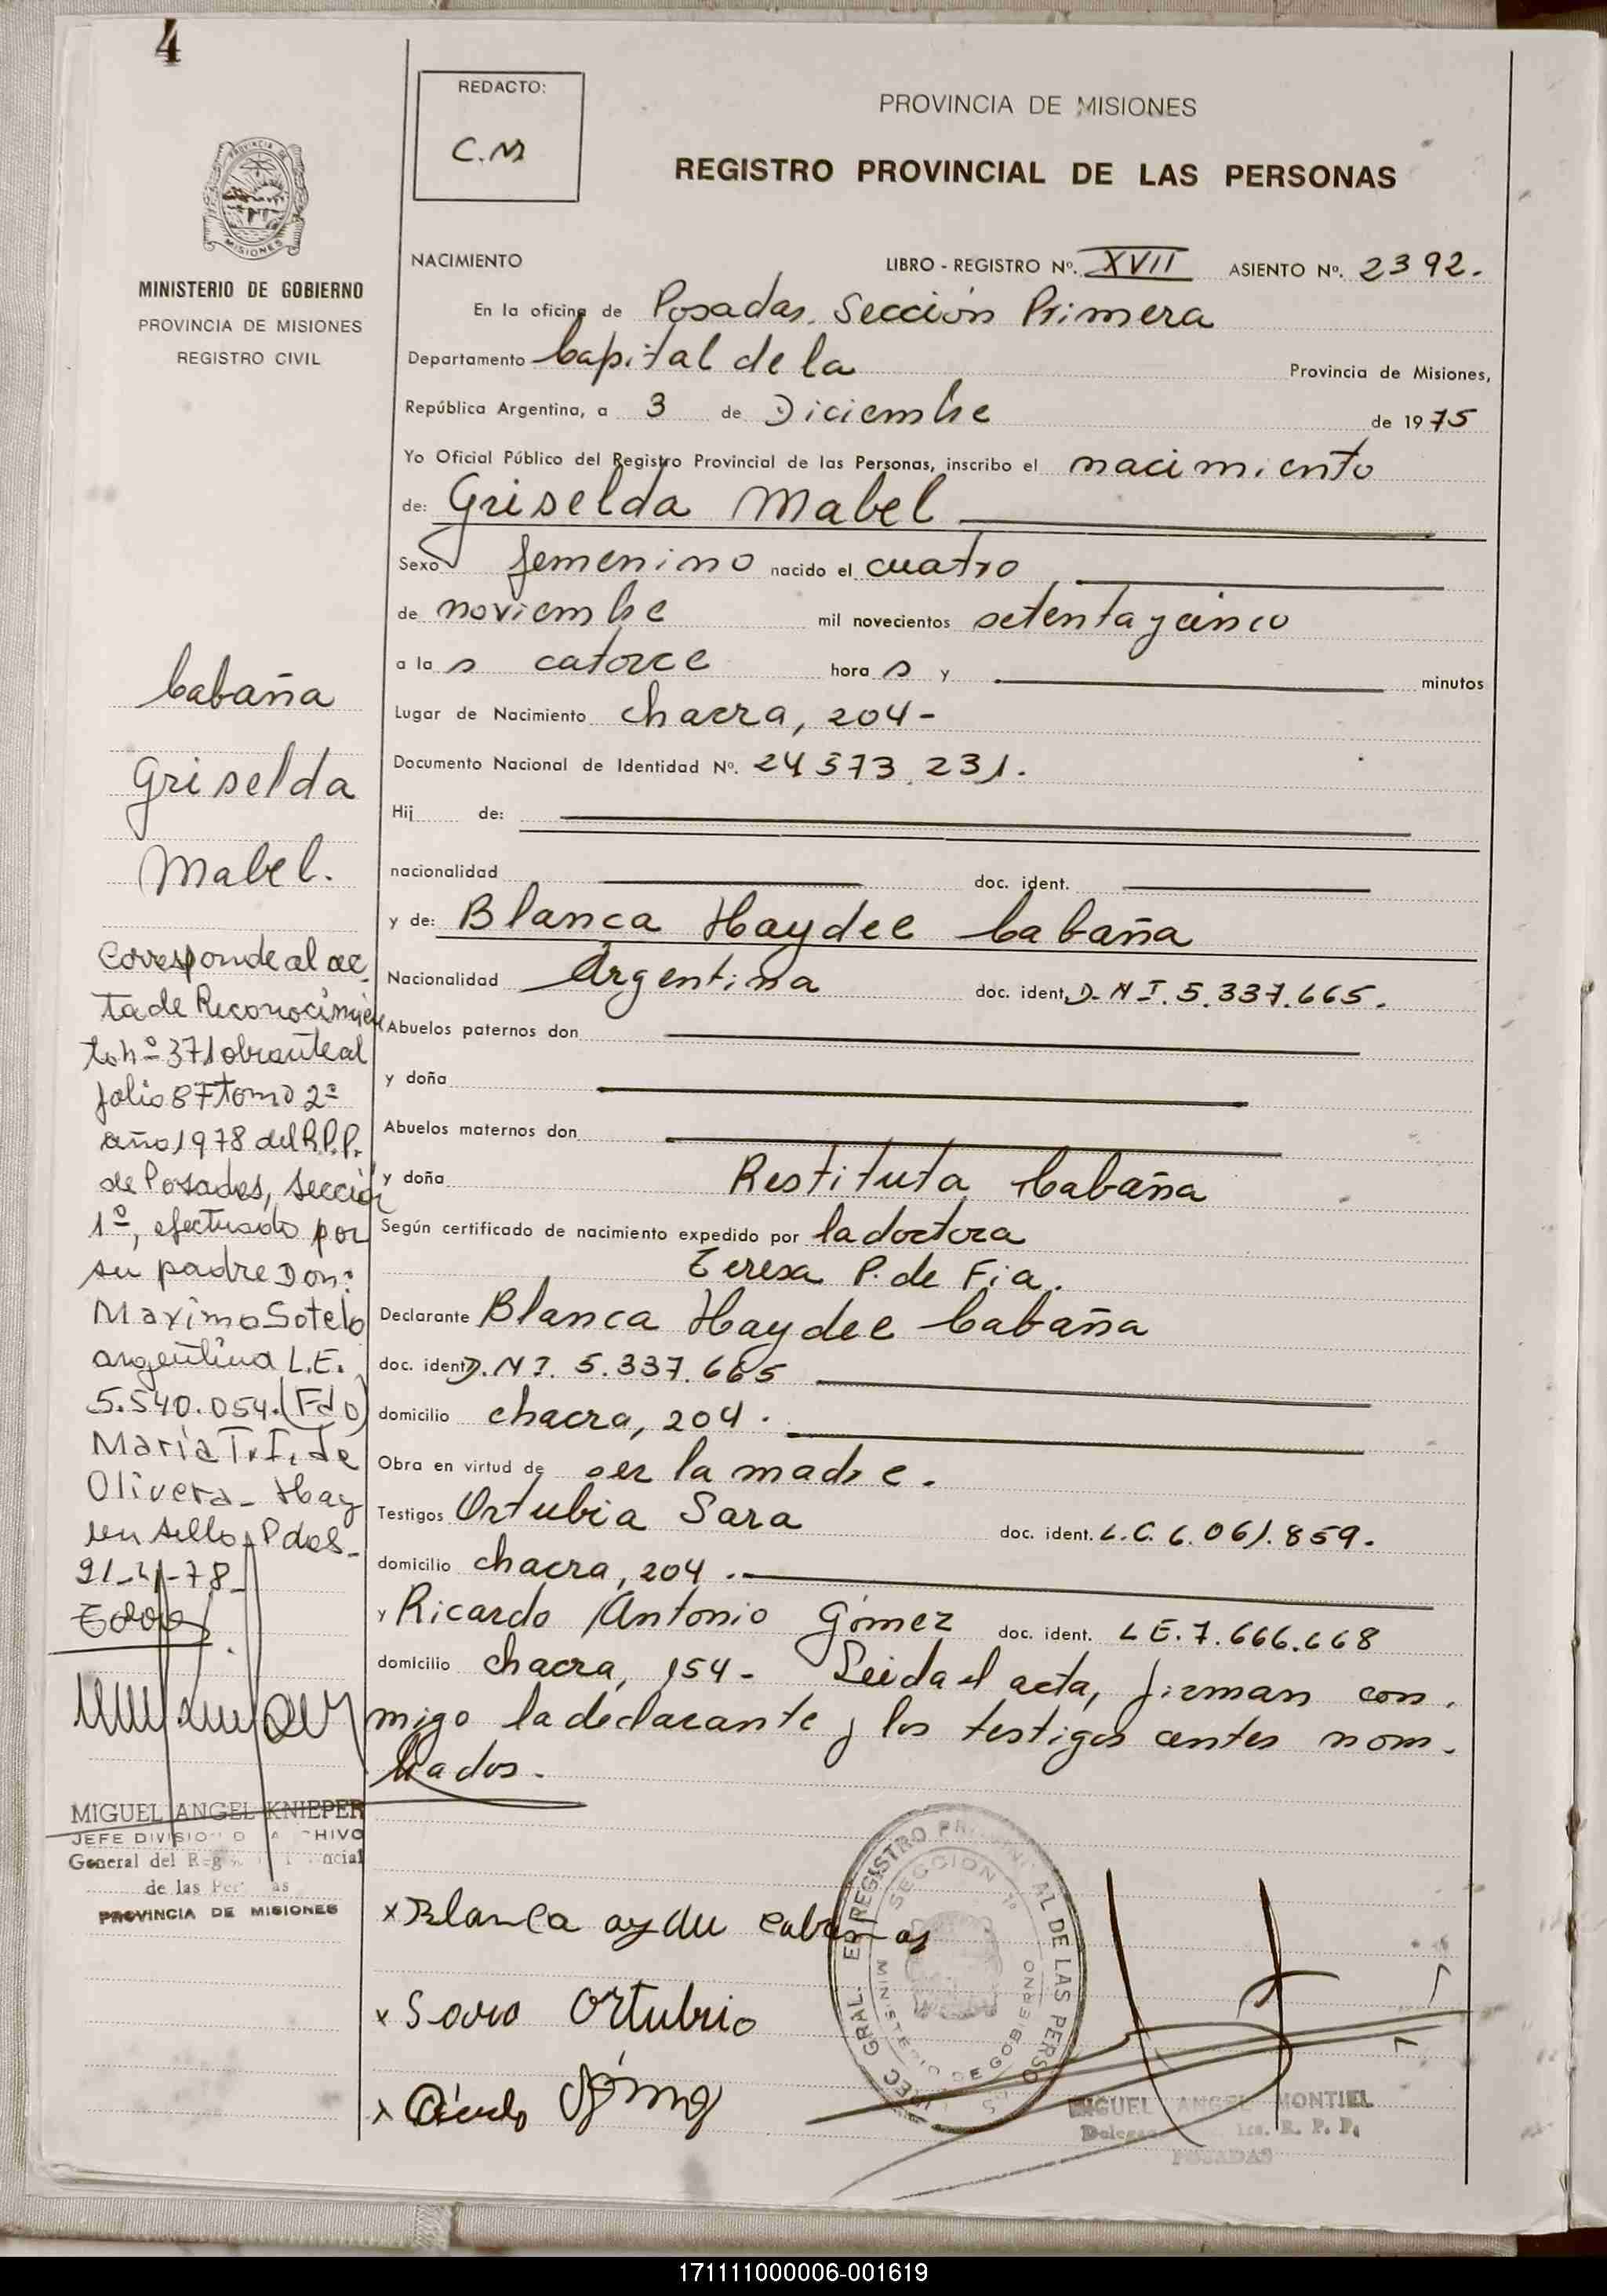 4
REDACTO:
C.M
PROVINCIA DE MISIONES
REGISTRO PROVINCIAL DE LAS PERSONAS
PROVINCIA DE
MISIONES
MINISTERIO DE GOBIERNO
PROVINCIA DE MISIONES
REGISTRO CIVIL
NACIMIENTO
LIBRO - REGISTRO Nº. XVII ASIENTO Nº. 2392.
En la oficina de Posadas. Sección Primera
Departamento Capital de la Provincia de Misiones,
República Argentina, a 3 de Diciembre de 1975
Yo Oficial Público del Registro Provincial de las Personas, inscribo el nacimiento
de: Griselda Mabel
Sexo femenino nacido el cuatro
de noviembre mil novecientos setenta y cinco
a la s catorce hora s y minutos
Lugar de Nacimiento chacra, 204-
Documento Nacional de Identidad Nº. 24573.231.
Hij de:
nacionalidad doc. ident.
y de: Blanca Haydee Cabaña
Nacionalidad Argentina doc. ident. D.N I. 5.337.665.
Abuelos paternos don
y doña
Abuelos maternos don
y doña Restituta Cabaña
Según certificado de nacimiento expedido por la doctora
Teresa P. de Fia.
Declarante Blanca Haydee Cabaña
doc. ident D.N I. 5.337.665
domicilio chacra, 204.
Obra en virtud de ser la madre.
Testigos Ortubia Sara doc. ident. L.C. 6.061.859.
domicilio chacra, 204.
y Ricardo Antonio Gómez doc. ident. L E. 7.666.668
domicilio chacra, 154- Leida el acta, firman con.
migo la declarante y los testigos antes nom.
brados.
Cabaña
Griselda
Mabel.
Corresponde al ac
ta de Reconocimien
to nº 371 obrante al
folio 87 tomo 2º
año 1978 del R.P.P.
de Posadas, Sección
1º, efectuado por
su padre Don:
Maximo Sotelo
argentino L.E.
5.540.054. (Fdo)
María T. I. de
Olivera- Hay
un sello, Pdas-
-78-
MIGUEL ANGEL KNIEPER
JEFE DIVISION
General del
de las
PROVINCIA DE MISIONES
x Blanca aydee cabañas
x Sara Ortubia
x Gómez
REGISTRO PROVINCIAL DE LAS PERSO
SECCION 1º
MINISTERIO DE GOBIERNO
MIGUEL ANGEL MONTIEL
R. P. P.
POSADAS
171111000006-001619